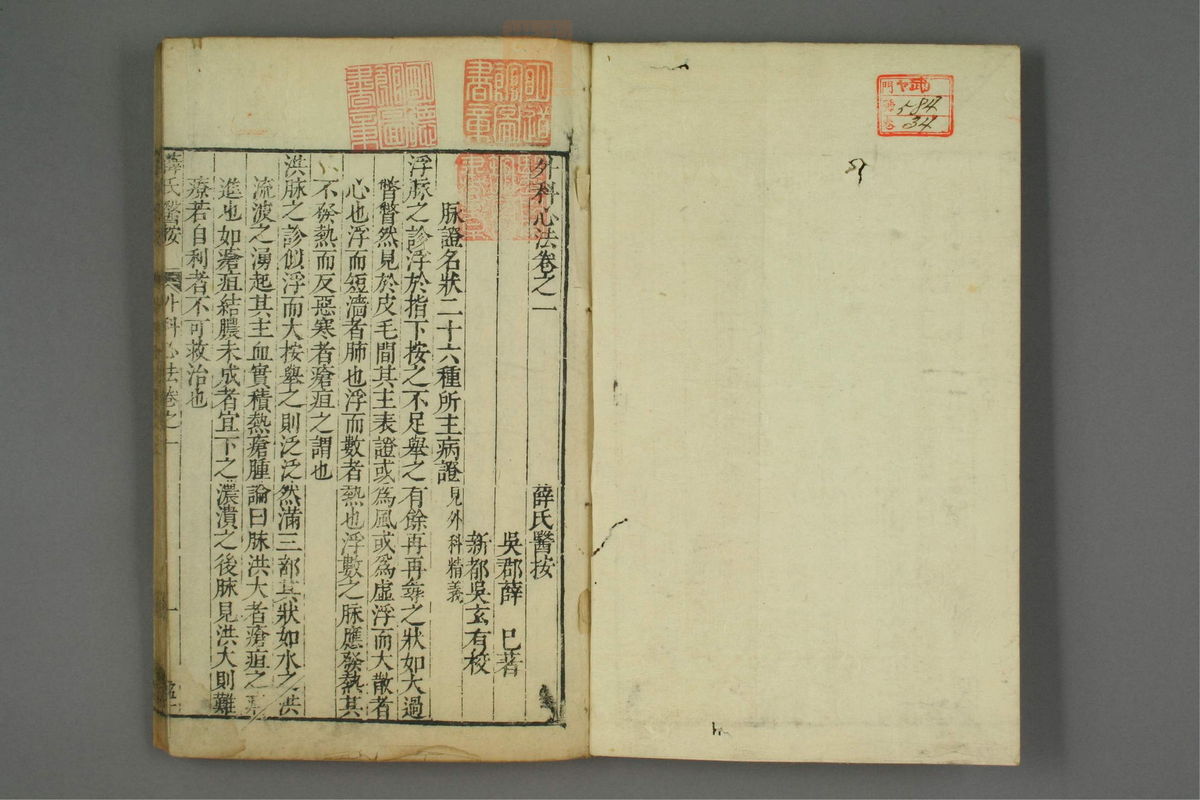 584
34
外科心法卷之一 薛氏醫按
吳郡薛 已著
新都吳玄有校
脉證名狀二十六種所主病證見外科精義
浮脉之診浮於指下按之不足舉之有餘再再尋之狀如太過
瞥瞥然見於皮毛間其主表證或為風或為虛浮而大散者
心也浮而短濇者肺也浮而數者熱也浮數之脉應發熱其
不發熱而反惡寒者瘡疽之謂也
洪脉之診似浮而大按舉之則泛泛然滿三部其狀如水之洪
流波之湧起其主血實積熱瘡腫論曰脉洪大者瘡疽之
進也如瘡疽結膿未成者宜下之濃潰之後脉見洪大則難
療若自利者不可救治也
薛氏醫按 外科心法卷之一 一